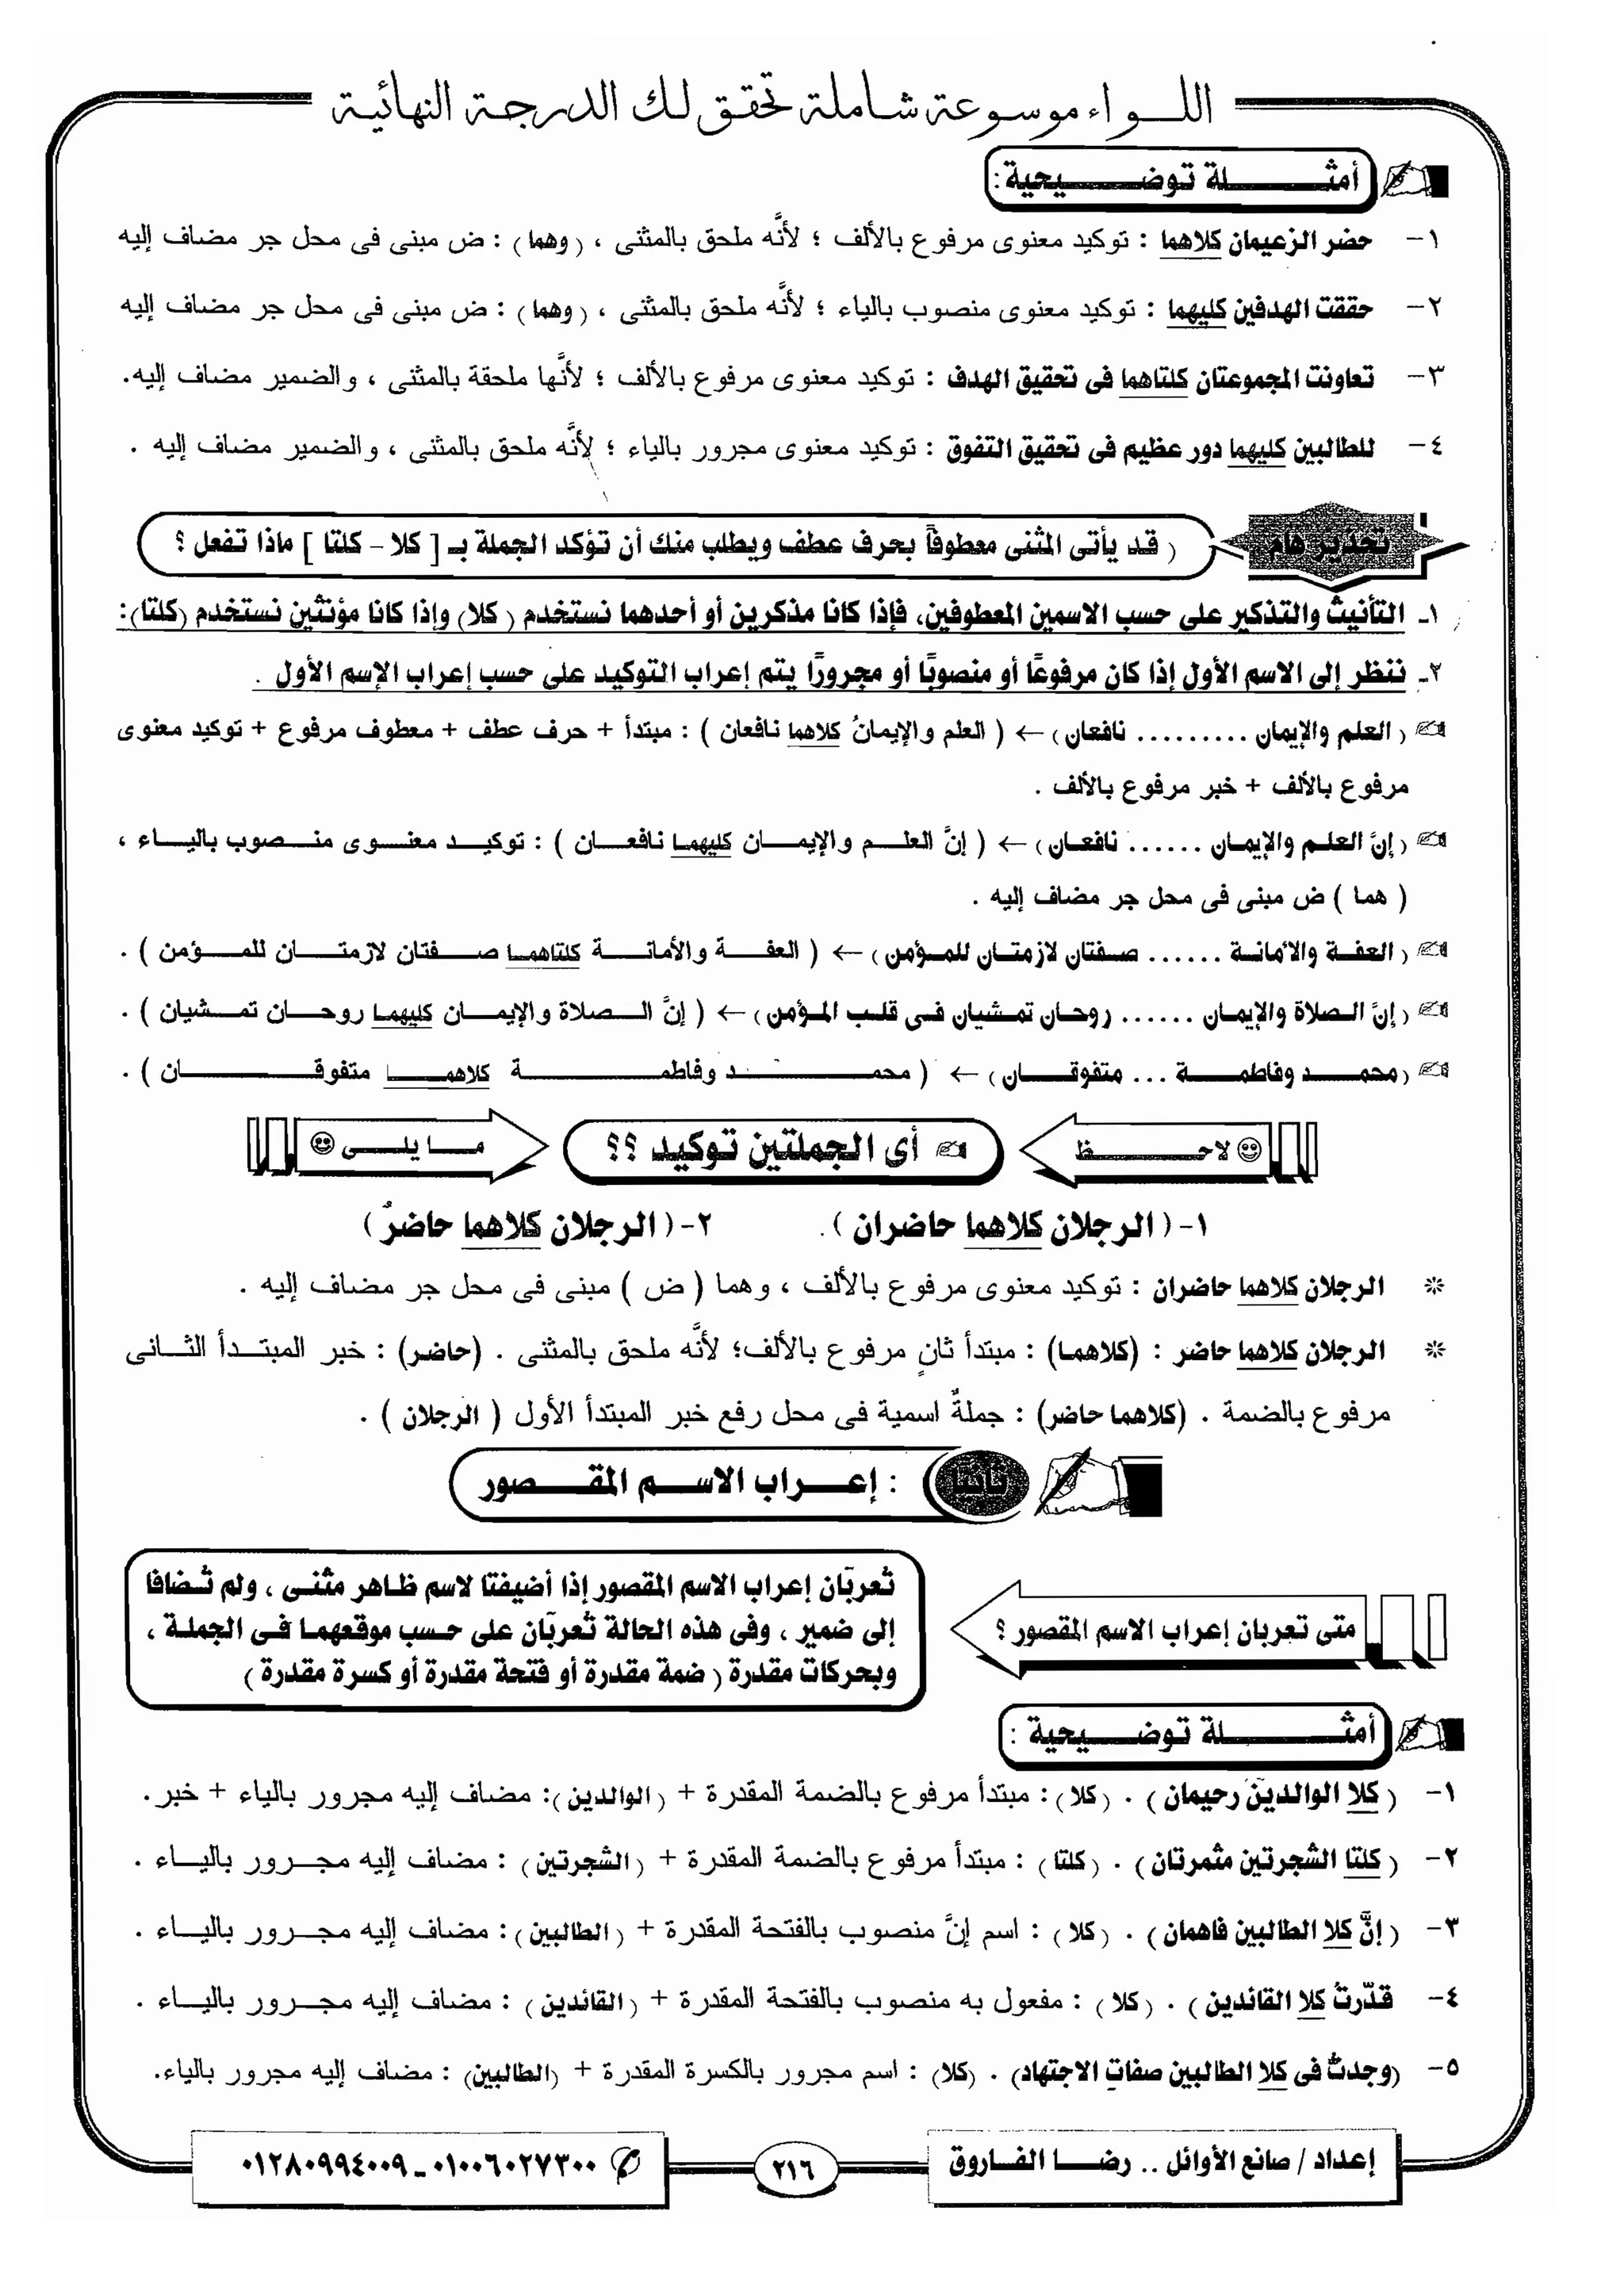 اللواء موسوعة شاملة تحقق لك الدرجة النهائية
أمثلة توضيحية:
١- حضر الزعيمان كلاهما : توكيد معنوى مرفوع بالألف ؛ لأنَّه ملحق بالمثنى ، (وهما) : ض مبنى فى محل جر مضاف إليه
٢- حققت الهدفين كليهما : توكيد معنوى منصوب بالياء ؛ لأنَّه ملحق بالمثنى ، (وهما) : ض مبنى فى محل جر مضاف إليه
٣- تعاونت المجموعتان كلتاهما فى تحقيق الهدف : توكيد معنوى مرفوع بالألف ؛ لأنَّها ملحقة بالمثنى ، والضمير مضاف إليه.
٤- للطالبين كليهما دور عظيم فى تحقيق التفوق : توكيد معنوى مجرور بالياء ؛ لأنَّه ملحق بالمثنى ، والضمير مضاف إليه .
تحذير هام
( قد يأتى المثنى معطوفاً بحرف عطف ويطلب منك أن تؤكد الجملة بـ [ كلا - كلتا ] ماذا تفعل ؟
١- التأنيث والتذكير على حسب الاسمين المعطوفين، فإذا كانا مذكرين أو أحدهما نستخدم (كلا) وإذا كانا مؤنثين نستخدم (كلتا):
٢- ننظر إلى الاسم الأول إذا كان مرفوعًا أو منصوبًا أو مجرورًا يتم إعراب التوكيد على حسب إعراب الإسم الأول .
(العلم والإيمان ......... نافعان) ← ( العلم والإيمانُ كلاهما نافعان ) : مبتدأ + حرف عطف + معطوف مرفوع + توكيد معنوى
مرفوع بالألف + خبر مرفوع بالألف .
(إنَّ العلم والإيمان ...... نافعان) ← ( إنَّ العلم والإيمان كليهما نافعان ) : توكيد معنوى منصوب بالياء ،
( هما ) ض مبنى فى محل جر مضاف إليه .
(العفة والأمانة ...... صفتان لازمتان للمؤمن) ← ( العفة والأمانة كلتاهما صفتان لازمتان للمؤمن ) .
(إنَّ الصلاة والإيمان ...... روحان تمشيان فى قلب المؤمن) ← ( إنَّ الصلاة والإيمان كليهما روحان تمشيان ) .
(محمد وفاطمة ... متفوقان) ← ( محمد وفاطمة كلاهما متفوقان ) .
لاحظ
أى الجملتين توكيد ؟؟
ما يلى
١- ( الرجلان كلاهما حاضران ). ٢- (الرجلان كلاهما حاضرُ)
* الرجلان كلاهما حاضران : توكيد معنوى مرفوع بالألف ، وهما ( ض ) مبنى فى محل جر مضاف إليه .
* الرجلان كلاهما حاضر : (كلاهما) : مبتدأ ثانٍ مرفوع بالألف؛ لأنَّه ملحق بالمثنى . (حاضر) : خبر المبتدأ الثانى
مرفوع بالضمة . (كلاهما حاضر) : جملةٌ اسمية فى محل رفع خبر المبتدأ الأول ( الرجلان ) .
ثانيا : إعراب الاسم المقصور
متى تعربان إعراب الاسم المقصور ؟
تُعربَان إعراب الاسم المقصور إذا أضيفتا لاسم ظاهر مثنى ، ولم تُضافا
إلى ضمير ، وفى هذه الحالة تُعربَان على حسب موقعهما فى الجملة ،
وبحركات مقدرة ( ضمة مقدرة أو فتحة مقدرة أو كسرة مقدرة )
أمثلة توضيحية :
١- ( كلا الوالدين رحيمان ) . (كلا) : مبتدأ مرفوع بالضمة المقدرة + (الوالدين): مضاف إليه مجرور بالياء + خبر.
٢- ( كلتا الشجرتين مثمرتان ) . (كلتا) : مبتدأ مرفوع بالضمة المقدرة + (الشجرتين) : مضاف إليه مجرور بالياء .
٣- ( إنَّ كلا الطالبين فاهمان ) . (كلا) : اسم إنَّ منصوب بالفتحة المقدرة + (الطالبين) : مضاف إليه مجرور بالياء .
٤- قدَّرتُ كلا القائدين ) . (كلا) : مفعول به منصوب بالفتحة المقدرة + (القائدين) : مضاف إليه مجرور بالياء .
٥- (وجدتُ فى كلا الطالبين صفاتِ الاجتهاد) . (كلا) : اسم مجرور بالكسرة المقدرة + (الطالبين) : مضاف إليه مجرور بالياء.
إعداد / صانع الأوائل .. رضا الفاروق
٢١٦
٠١٠٠٦٠٢٧٣٠٠ - ٠١٢٨٠٩٩٤٠٠٩